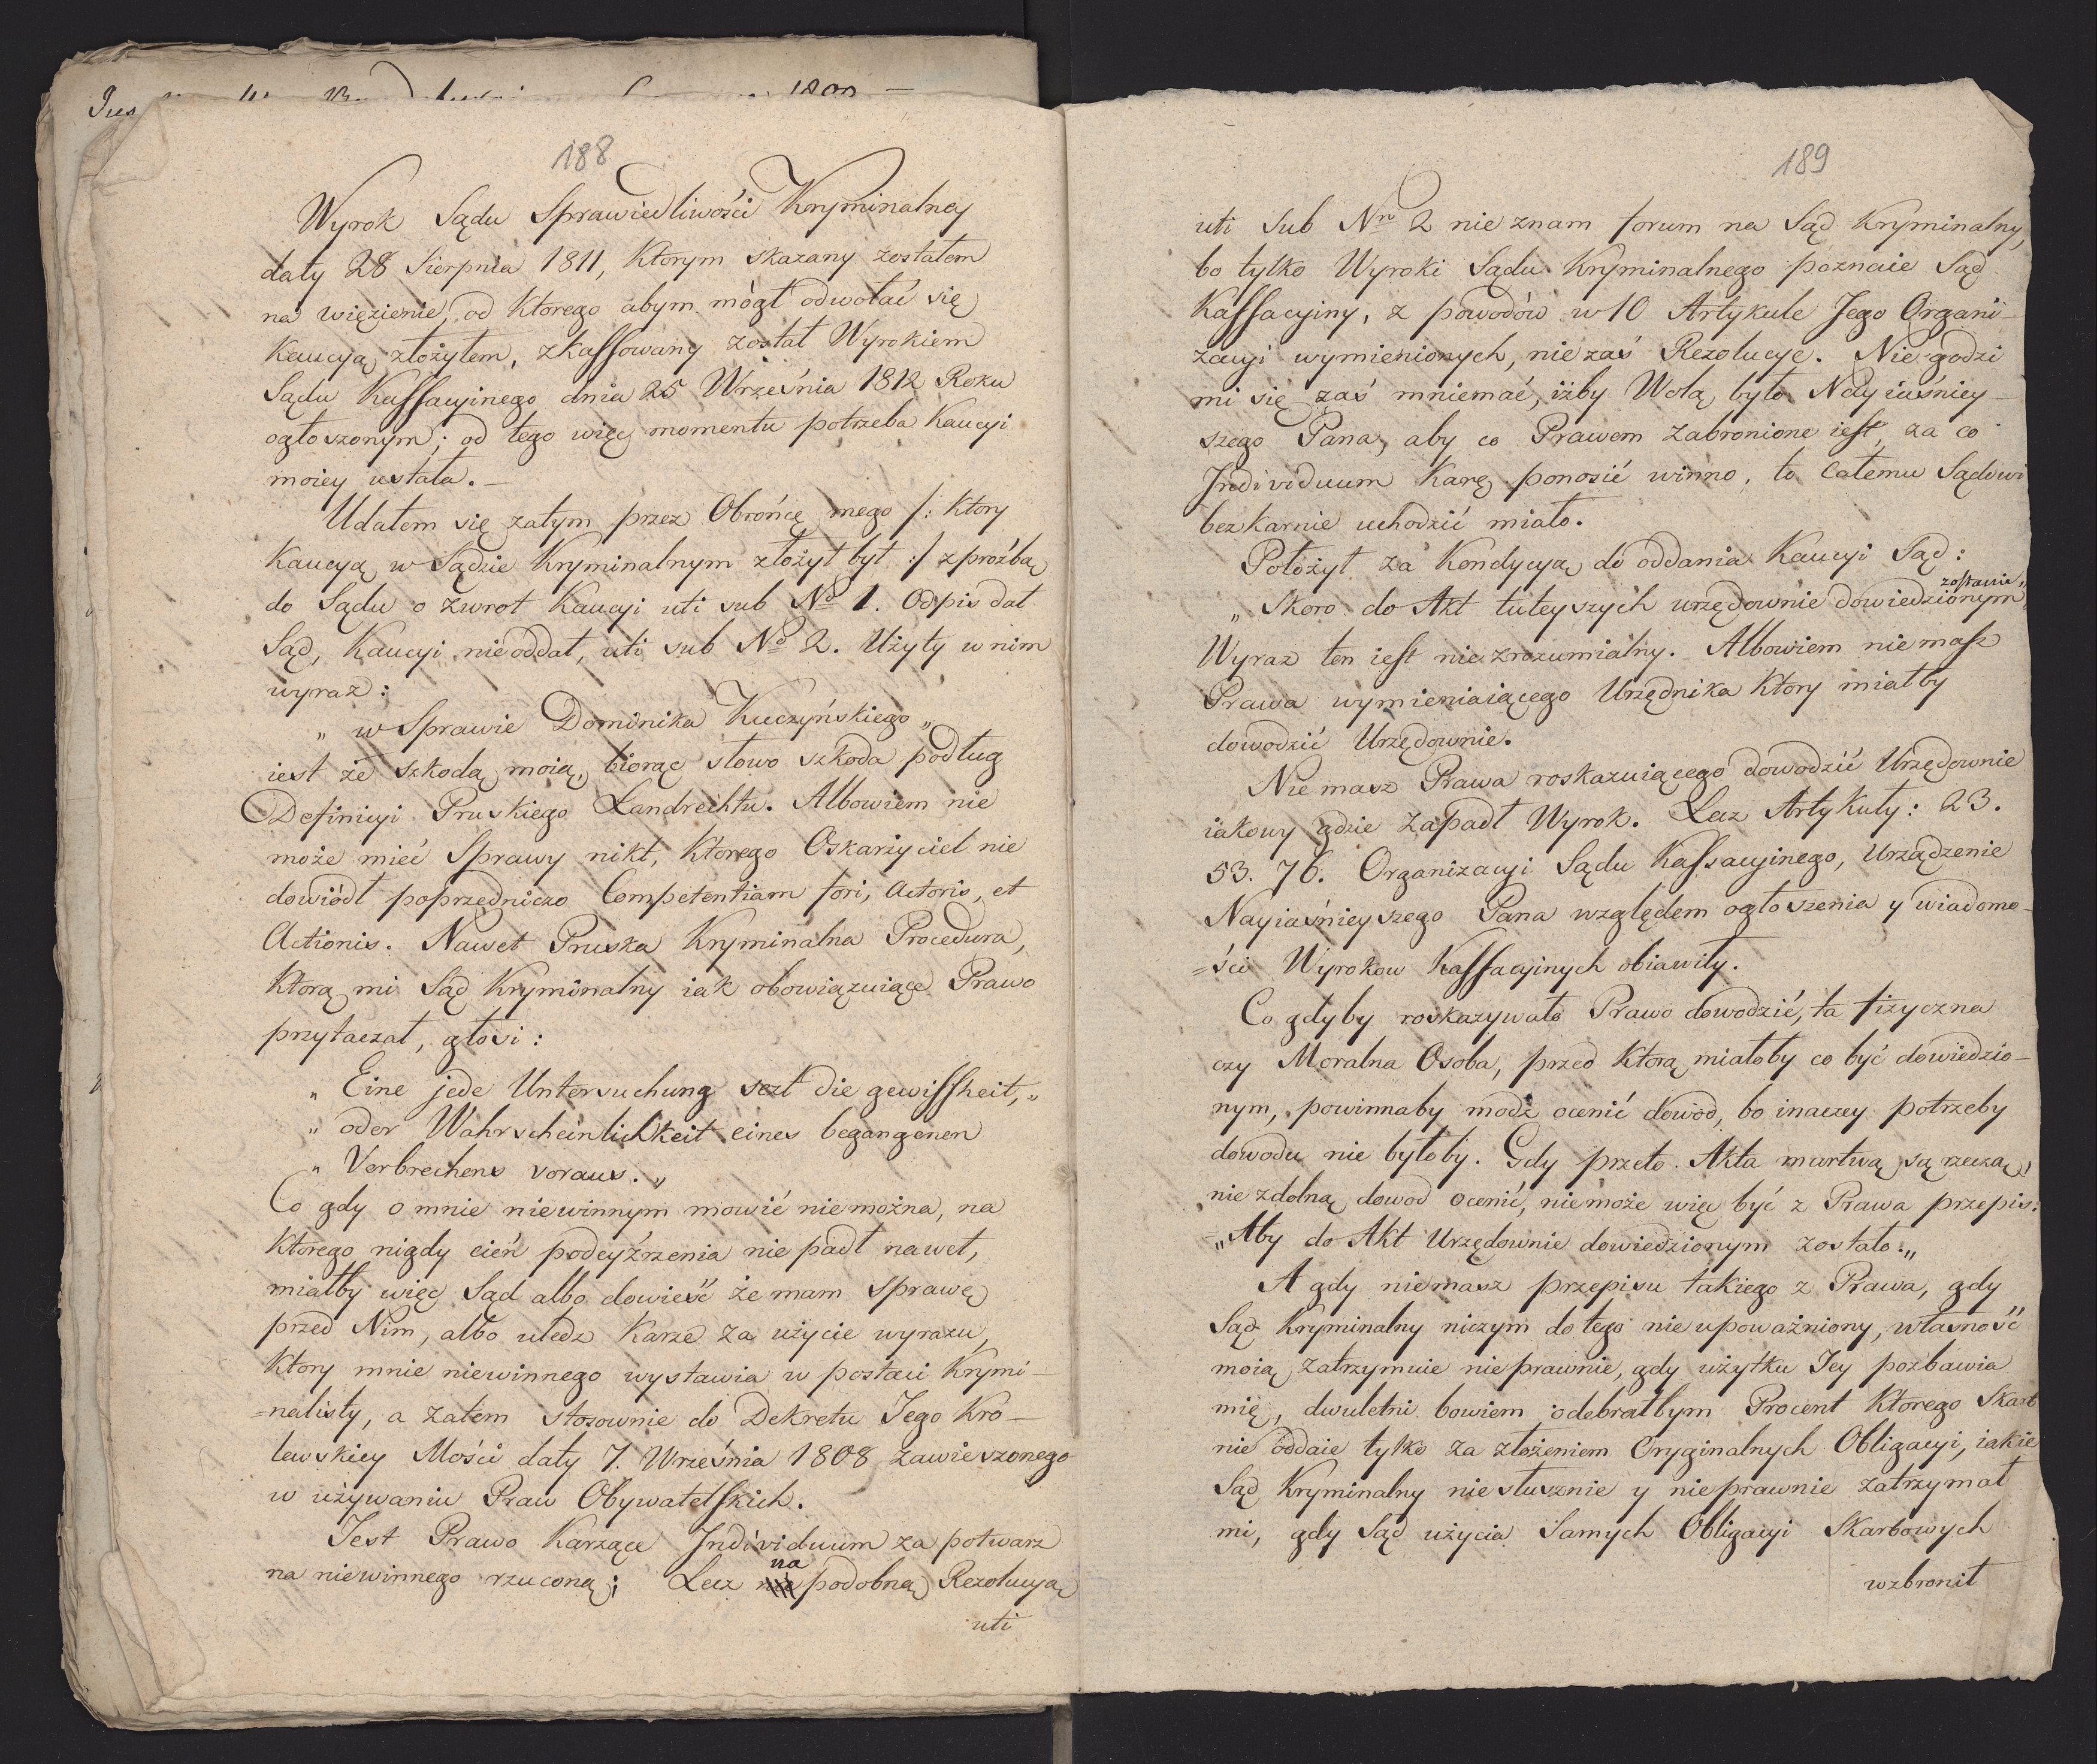 188
Wyrok Sądu Sprawiedliwości Kryminalney
daty 28 Sierpnia 1811, Którym skazany zostałem
na więzienie, od Ktorego abym mógł odwołać się
Kaucyą złożyłem, zkassowany został Wyrokiem
Sądu Kassacyinego dnia 25 Września 1812 Roku
ogłoszonym; od tego więc momentu potrzeba Kaucyi
moiey ustała. –
Udałem się zatym przez Obrońcę mego /: Ktory
Kaucyą w Sądzie Kryminalnym złożył był :/ z prośbą
do Sądu o zwrot Kaucyi uti sub No 1. Odpis dał
Sąd, Kaucyi nie oddał, uti sub No 2. Użyty w nim
wyraz:
„ w Sprawie Dominika Kuczyńskiego „
iest że szkodą moią, biorąc słowo szkoda podług
Definicyi Pruskiego Landrechtu. Albowiem nie
może mieć Sprawy nikt, Którego Oskarżyciel nie
dowiódł poprzedniczo Competentiam fori, Actoris, et
Actionis. Nawet Pruska Kryminalna Procedura,
Którą mi Sąd Kryminalny iak obowiązuiące Prawo
przytaczał, głosi:
„ Eine jede Untersuchung sezt die gewissheit, „
„ oder Wahrscheinlichkeit eines begangenen
„ Verbrechens voraus. „
Co gdy o mnie niewinnym mowić nie można, na
Ktorego nigdy cień podeyźrzenia nie padł nawet,
miałby więc Sąd albo dowieść że mam Sprawę
przed Nim, albo uledz Karze za użycie wyrazu,
Ktory mnie niewinnego wystawia w postaci Krymi-
=nalisty, a zatem stosownie do Dekretu Jego Kro-
lewskiey Mości daty 7. Września 1808 zawieszonego
w używaniu Praw Obywatelskich.
Jest Prawo Karzące Individuum za potwarz
na niewinnego rzuconą; Lecz na podobną Rezolucyą
uti
189
uti sub Nro 2 nie znam forum na Sąd Kryminalny,
bo tylko Wyroki Sądu Kryminalnego poznaie Sąd
Kassacyiny, z powodów w 10 Artykule Jego Organi-
zacyi wymienionych, nie zaś Rezolucye. Nie godzi
mi się zaś mniemać, iżby Wolą było Nayiaśniey-
szego Pana, aby co Prawem zabronione iest, za co
Individuum Karę ponosić winno, to całemu Sądowi
bezkarnie uchodzić miało.
Położył za Kondycyą do oddania Kaucyi Sąd:
„ Skoro do Akt tuteyszych urzędownie dowiedzionym zostanie „
Wyraz ten iest niezrozumialny. Albowiem nie masz
Prawa wymieniaiącego Urzędnika Ktory miałby
dowodzić Urzędownie.
Nie masz Prawa roskazuiącego dowodzić Urzędownie
iakowy gdzie zapadł Wyrok. Lecz Artykuły: 23.
53. 76. Organizacyi Sądu Kassacyinego, Urządzenie
Nayiaśnieyszego Pana względem ogłoszenia y wiadomo-
=ści Wyrokow Kassacyinych obiawiły.
Co gdyby roskazywało Prawo dowodzić, ta fizyczna
czy Moralna Osoba, przed Którą miałoby co być dowiedzio-
nym, powinnaby módz ocenić dowód, bo inaczey potrzeby
dowodu nie byłoby. Gdy przeto Akta martwą są rzeczą,
nie zdolną dowod ocenić, nie może więc być z Prawa przepis:
„ Aby do Akt Urzędownie dowiedzionym zostało. „
A gdy niemasz przepisu takiego z Prawa, gdy
Sąd Kryminalny niczym do tego nie upoważniony, własność
moią zatrzymuie nieprawnie, gdy użytku Jey pozbawia
mię, dwuletni bowiem odebrałbym Procent Ktorego Skarb
nie oddaie tylko za złożeniem Oryginalnych Obligacyi, iakie
Sąd Kryminalny niesłusznie y nieprawnie zatrzymał
mi, gdy Sąd użycia Samych Obligacyi Skarbowych
wzbronił